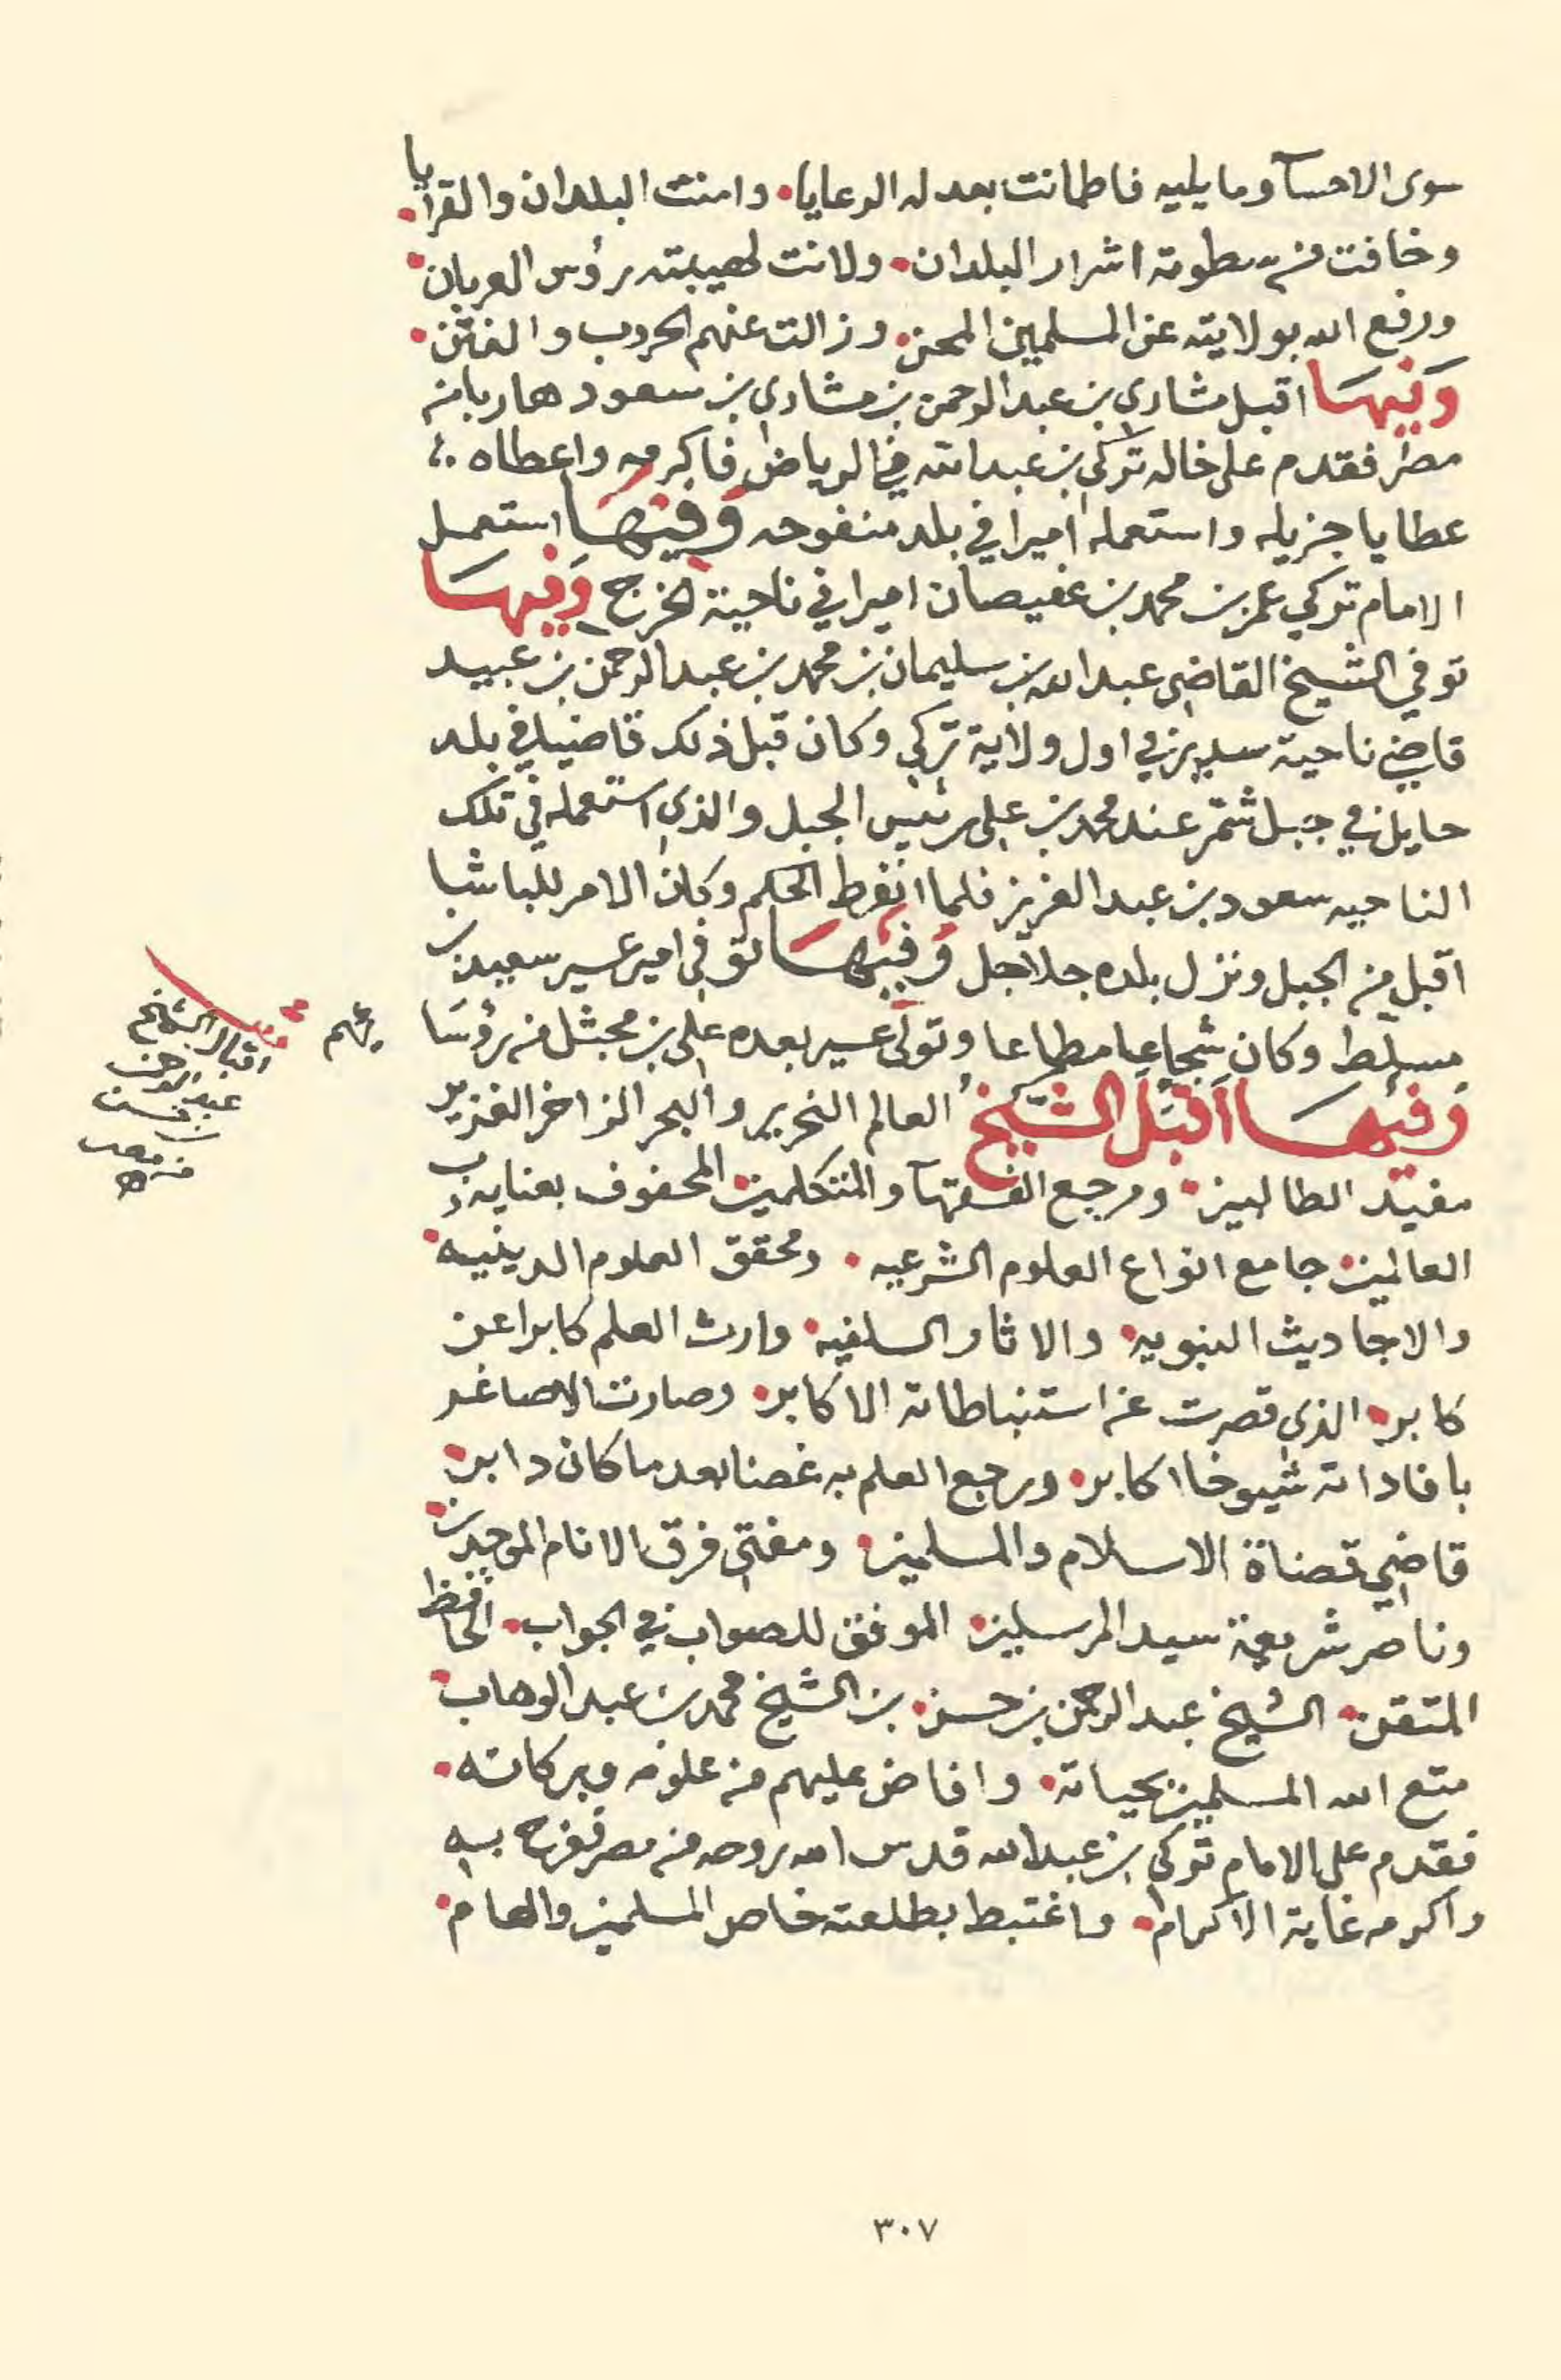 سوى الاحسآ وما يليه فاطمانت بعدله الرعايا. وامنت البلدان والقرايا.
وخافت من سطوته اشرار البلدان. ولانت لهيبته رؤس العربان.
ورفع الله بولايته عن المسلمين المحن. وزالت عنهم الحروب والفتن.
وَفيهَا اقبل مشاري بن عبدالرحمن بن مشاري بن سعود هاربا من
مصر فقدم على خاله تركي بن عبدالله في الرياض فاكرمه واعطاه
عطايا جزيله واستعمله اميرا في بلد منفوحه وَفيهَا استعمل
الامام تركي عمر بن محمد بن عفيصان اميرا في ناحية الخرج وَفيهَا
توفي الشيخ القاضي عبدالله بن سليمان بن محمد بن عبدالرحمن بن عبيد
قاضي ناحية سدير في اول ولاية تركي وكان قبل ذلك قاضيا في بلد
حايل في جبل شمّر عند محمد بن علي رئيس الجبل والذي استعمله في تلك
الناحيه سعود بن عبدالعزيز فلما انفرط الحكم وكان الامر للباشا
اقبل من الجبل ونزل بلده جلاجل وَفيهَا توفي امير عسير سعيد بن
مسلّط وكان شجاعا مطاعا وتولّى عسير بعده علي بن مجثل من رؤسَا
ئهم
وَفيهَا اَقبَل الشّيخ العالم النحرير والبحر الزاخر الغزير
مفيد الطالبين. ومرجع الفقهآ والمتكلمين المحفوف بعناية رب
العالمين. جامع انواع العلوم الشرعيه. ومحقق العلوم الدينيه.
والاحاديث النبويه. والاثار السلفيه. وارث العلم كابرا عن
كابر. الذي قصرت عن استنباطاته الاكابر. وصارت الاصاغر
بافاداته شيوخا اكابر. ورجع العلم به غصنا بعد ما كان دابر.
قاضي قضاة الاسلام والمسلمين. ومفتي فرق الانام الموحدين.
وناصر شريعة سيد المرسلين. الموفق للصواب في الجواب. الحافظ
المتقن. الشيخ عبدالرحمن بن حسن. بن الشيخ محمد بن عبدالوهاب.
متع الله المسلمين بحياته. وافاض عليهم من علومه وبركاته.
فقدم على الامام تركي بن عبدالله قدس الله روحه من مصر ففرح به
واكرمه غاية الاكرام. واغتبط بطلعته خاص المسلمين والعام.
اقبال الشيخ
عبدالرحمن
بن حسن
من مصر
٣٠٧